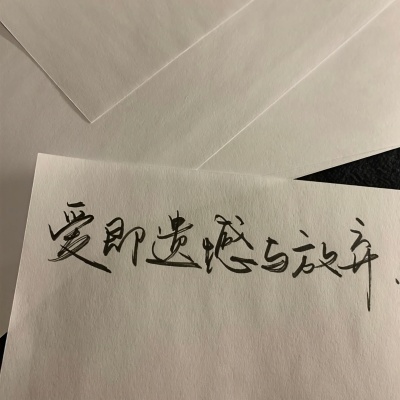 爱即遗憾与放弃.